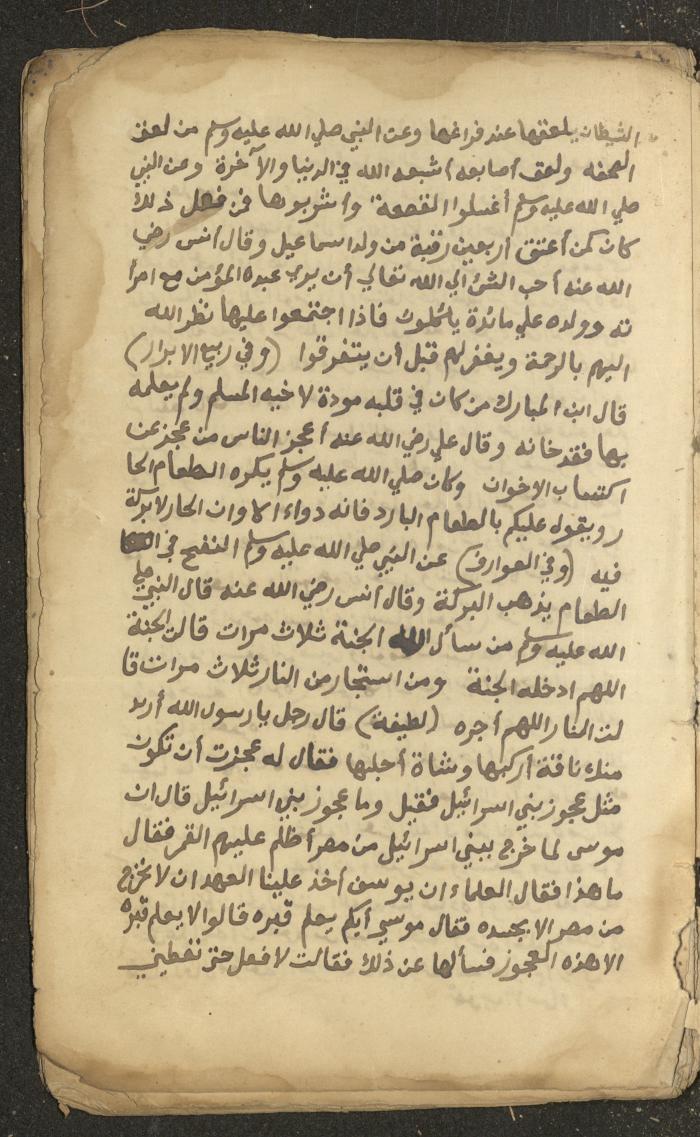 الشيطان يلعقها عند فراغها وعن النبي صلي الله عليه وسلم من لعق
الصحفه ولعق اصابعه اشبعه الله في الدنيا والآخرة وعن النبي
صلي الله عليه وسلم أغسلوا القصعة واشربوها فمن فعل ذلك
كان كمن أعتق اربعين رقبة من ولد اسماعيل وقال انس رضي
الله عنه أحب الشئ الي الله تعالي أن يري عبده المؤمن مع امرأ
ته وولده علي مائدة يأكلون فاذا اجتمعوا عليها نظر الله
اليهم بالرحمة ويغفر لهم قبل أن يتفرقوا (وفي ربيع الابرار)
قال ابن المبارك من كان في قلبه مودة لاخيه المسلم ولم يعلمه
بها فقد خانه وقال علي رضي الله عنه أعجز الناس من عجز عن
اكتساب الاخوان وكان صلي الله عليه وسلم يكره الطعام الحا
ر ويقول عليكم بالطعام البارد فانه دواء الا وان الحار لا بركة
فيه (وفي العوارف) عن النبي صلي الله عليه وسلم النفخ في
الطعام يذهب البركة وقال أنس رضي الله عنه قال النبي صلي
الله عليه وسلم من سأل الله الجنة ثلاث مرات قالت الجنة
اللهم ادخله الجنة ومن استجار من النار ثلاث مرات قا
لت النار اللهم أجره (لطيفة) قال رجل يا رسول الله أريد
منك ناقة أركبها وشاة أحلبها فقال له عجزت أن تكون
مثل عجوز بني اسرائيل فقيل وما عجوز بني اسرائيل قال ان
موسى لما خرج ببني اسرائيل من مصر أظلم عليهم القمر فقال
ما هذا فقال العلماء ان يوسف أخذ علينا العهد ان لا نخرج
من مصر الا بجسده فقال موسي أيكم يعلم قبره قالوا لا يعلم قبره
الا هذه العجوز فسألها عن ذلك فقالت لا فعل حتى تعطيني